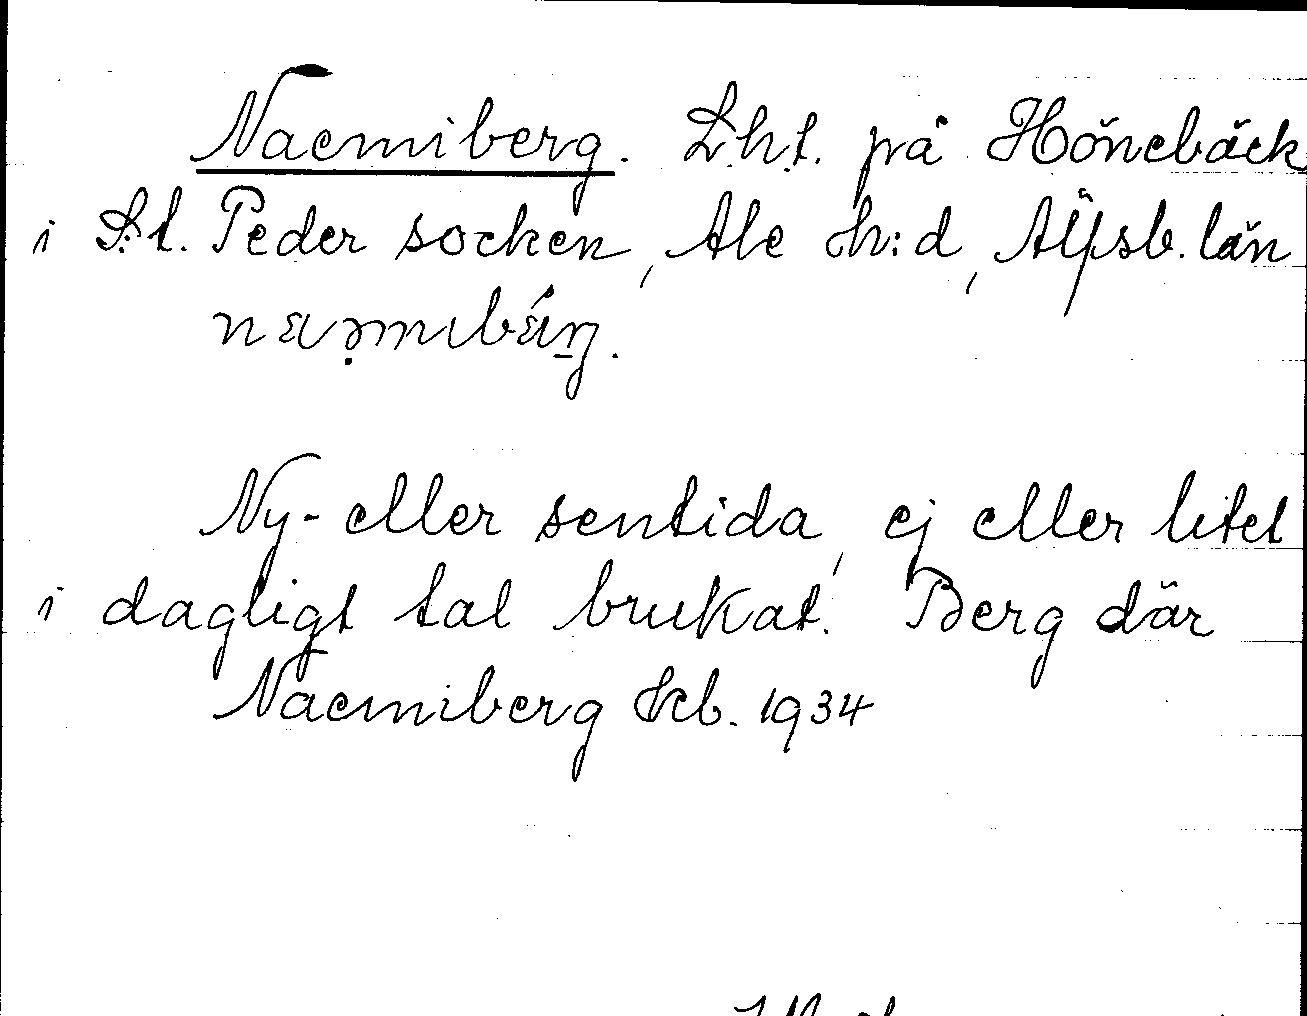 Naemiberg. L.h.t. på Hönebäck
i S:t. Peder socken, Ale h:d, Älfsb. län
Ny- eller sentida, ej eller litet
i dagligt tal brukat. Berg där
Naemiberg Jcb. 1934